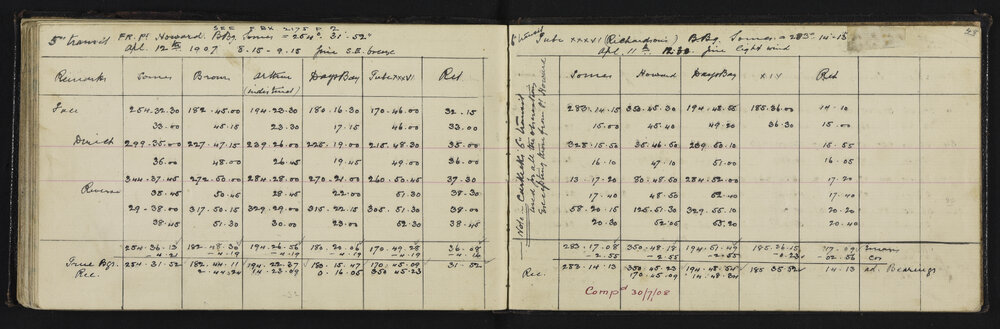 SEE F.BK 2175 P.
5" transit FR. Pt Howard. BBg. Somes = 254° 31' 52"
Apl. 12th 1907 8.15 - 9.15 fine S.E. breeze
Remarks Somes Brown Arthur (indistinct) Days Bay Tube XXXVI Ret
Face 254.32.30 182.45.00 194.23.30 180.16.30 170.46.00 32.15
33.00 45.15 23.30 17.15 46.00 33.00
Direct 299.35.00 227.47.15 239.26.00 225.19.00 215.48.30 35.00
36.00 48.00 26.45 19.45 49.00 36.00
344.37.45 272.50.00 284.28.00 270.21.00 260.50.45 37.30
Reverse 38.45 50.45 28.45 22.00 51.30 38.30
29.38.00 317.50.15 329.29.00 315.22.15 305.51.30 38.00
38.45 51.30 30.00 23.00 52.30 38.45
254.36.13 182.48.30 194.26.56 180.20.06 170.49.28 36.08
4.21 4.19 4.19 4.19 4.19
True Bgs. 254.31.52 182.44.11 194.22.37 180.15.47 170.45.09 31.52
Rec. 2.44.24 14.23.09 0.16.05 350.45.23
48
5" transit Tube XXXVI (Richardsons) BBg. Somes = 283° 14' 13
Apl. 11th 12.30 fine light wind
Note: Carkeeks 6" transit used for all the observations excepting those from Pt Howard
Somes Howard Days Bay XIV Ret
283.14.15 350.45.30 194.48.55 185.36.00 14.10
15.00 45.40 49.20 36.30 15.00
328.15.50 35.46.50 239.50.10 15.55
16.10 47.10 51.00 16.05
13.17.20 80.48.50 284.52.00 17.20
17.40 48.50 52.40 17.40
58.20.15 125.51.30 329.55.10 20.20
20.30 52.05 55.20 20.40
283.17.08 350.48.18 194.51.49 185.36.15 17.09 mean
2.55 2.55 2.55 0.23 02.56 Cor
Rec. 283.14.13 350.45.23 194.48.54 185.35.52 14.13 ad. Bearings
170.45.09 14.48.34
Compd 30/7/08